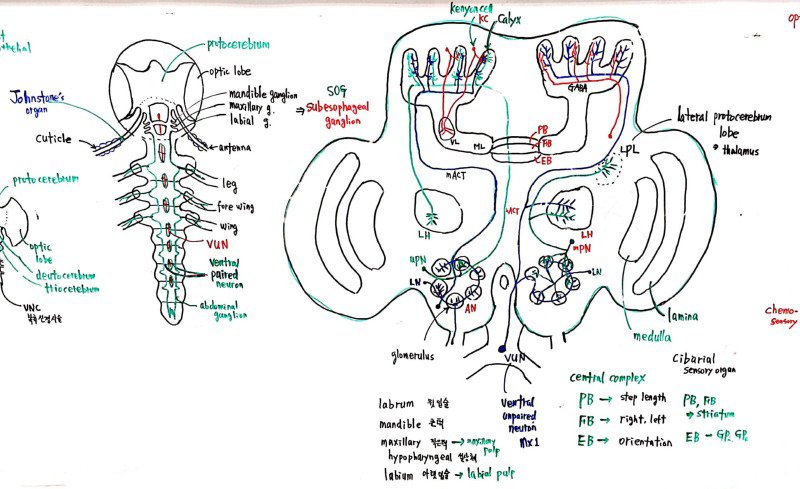 protocerebrum
optic lobe
Johnstone's
organ
mandible ganglion
maxillary g.
labial g.
SOG
⇒ Subesophageal
ganglion
cuticle
antenna
leg
fore wing
wing
VUN
ventral
paired
neuron
abdominal
ganglion
protocerebrum
optic
lobe
deutocerebrum
tritocerebrum
VNC
kenyon cell
KC
Calyx
GABA
VL
ML
PB
FB
EB
mACT
LPL
lateral protocerebrum
lobe
thalamus
LH
LH
mPN
LN
LN
AN
glomerulus
VUN
lamina
medulla
chemo-
sensory
labrum 윗입술
mandible 큰턱
maxillary 작은턱 → maxillary
pulp
hypopharyngeal
labium 아랫입술 → labial pulp
ventral
unpaired
neuron
mx1
central complex
PB → step length
FB → right, left
EB → orientation
Cibarial
sensory organ
PB, FB
→ striatum